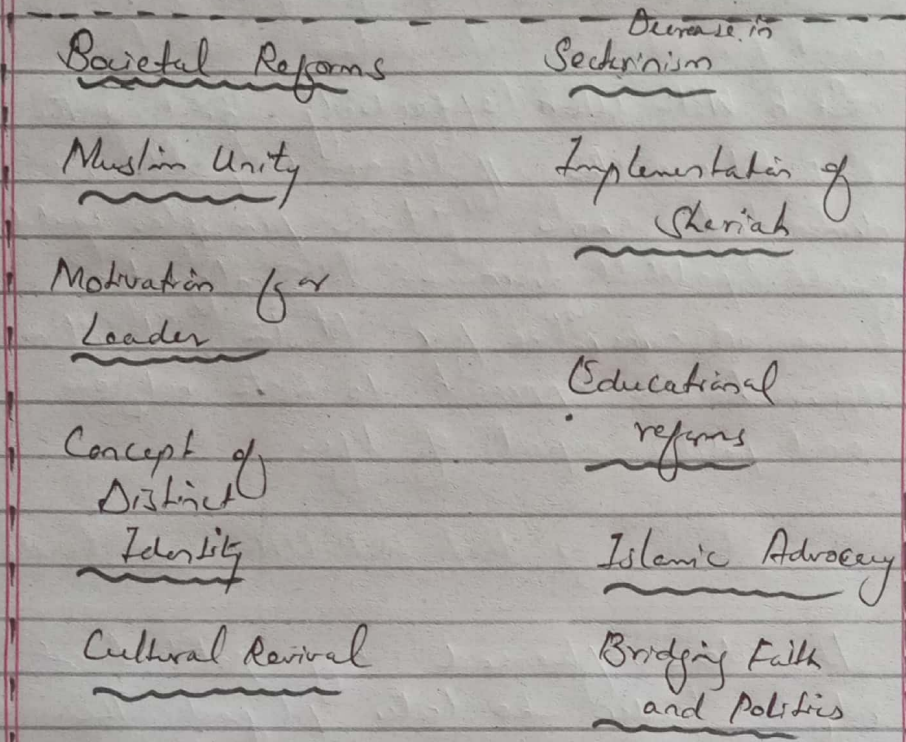 Societal Reforms
Muslim Unity
Motivation for
Leader
Concept of
Distinct
Identity
Cultural Revival
Decrease in
Sectrinism
Implementation of
Shariah
Educational
reforms
Islamic Advocacy
Bridging Faith
and Politics